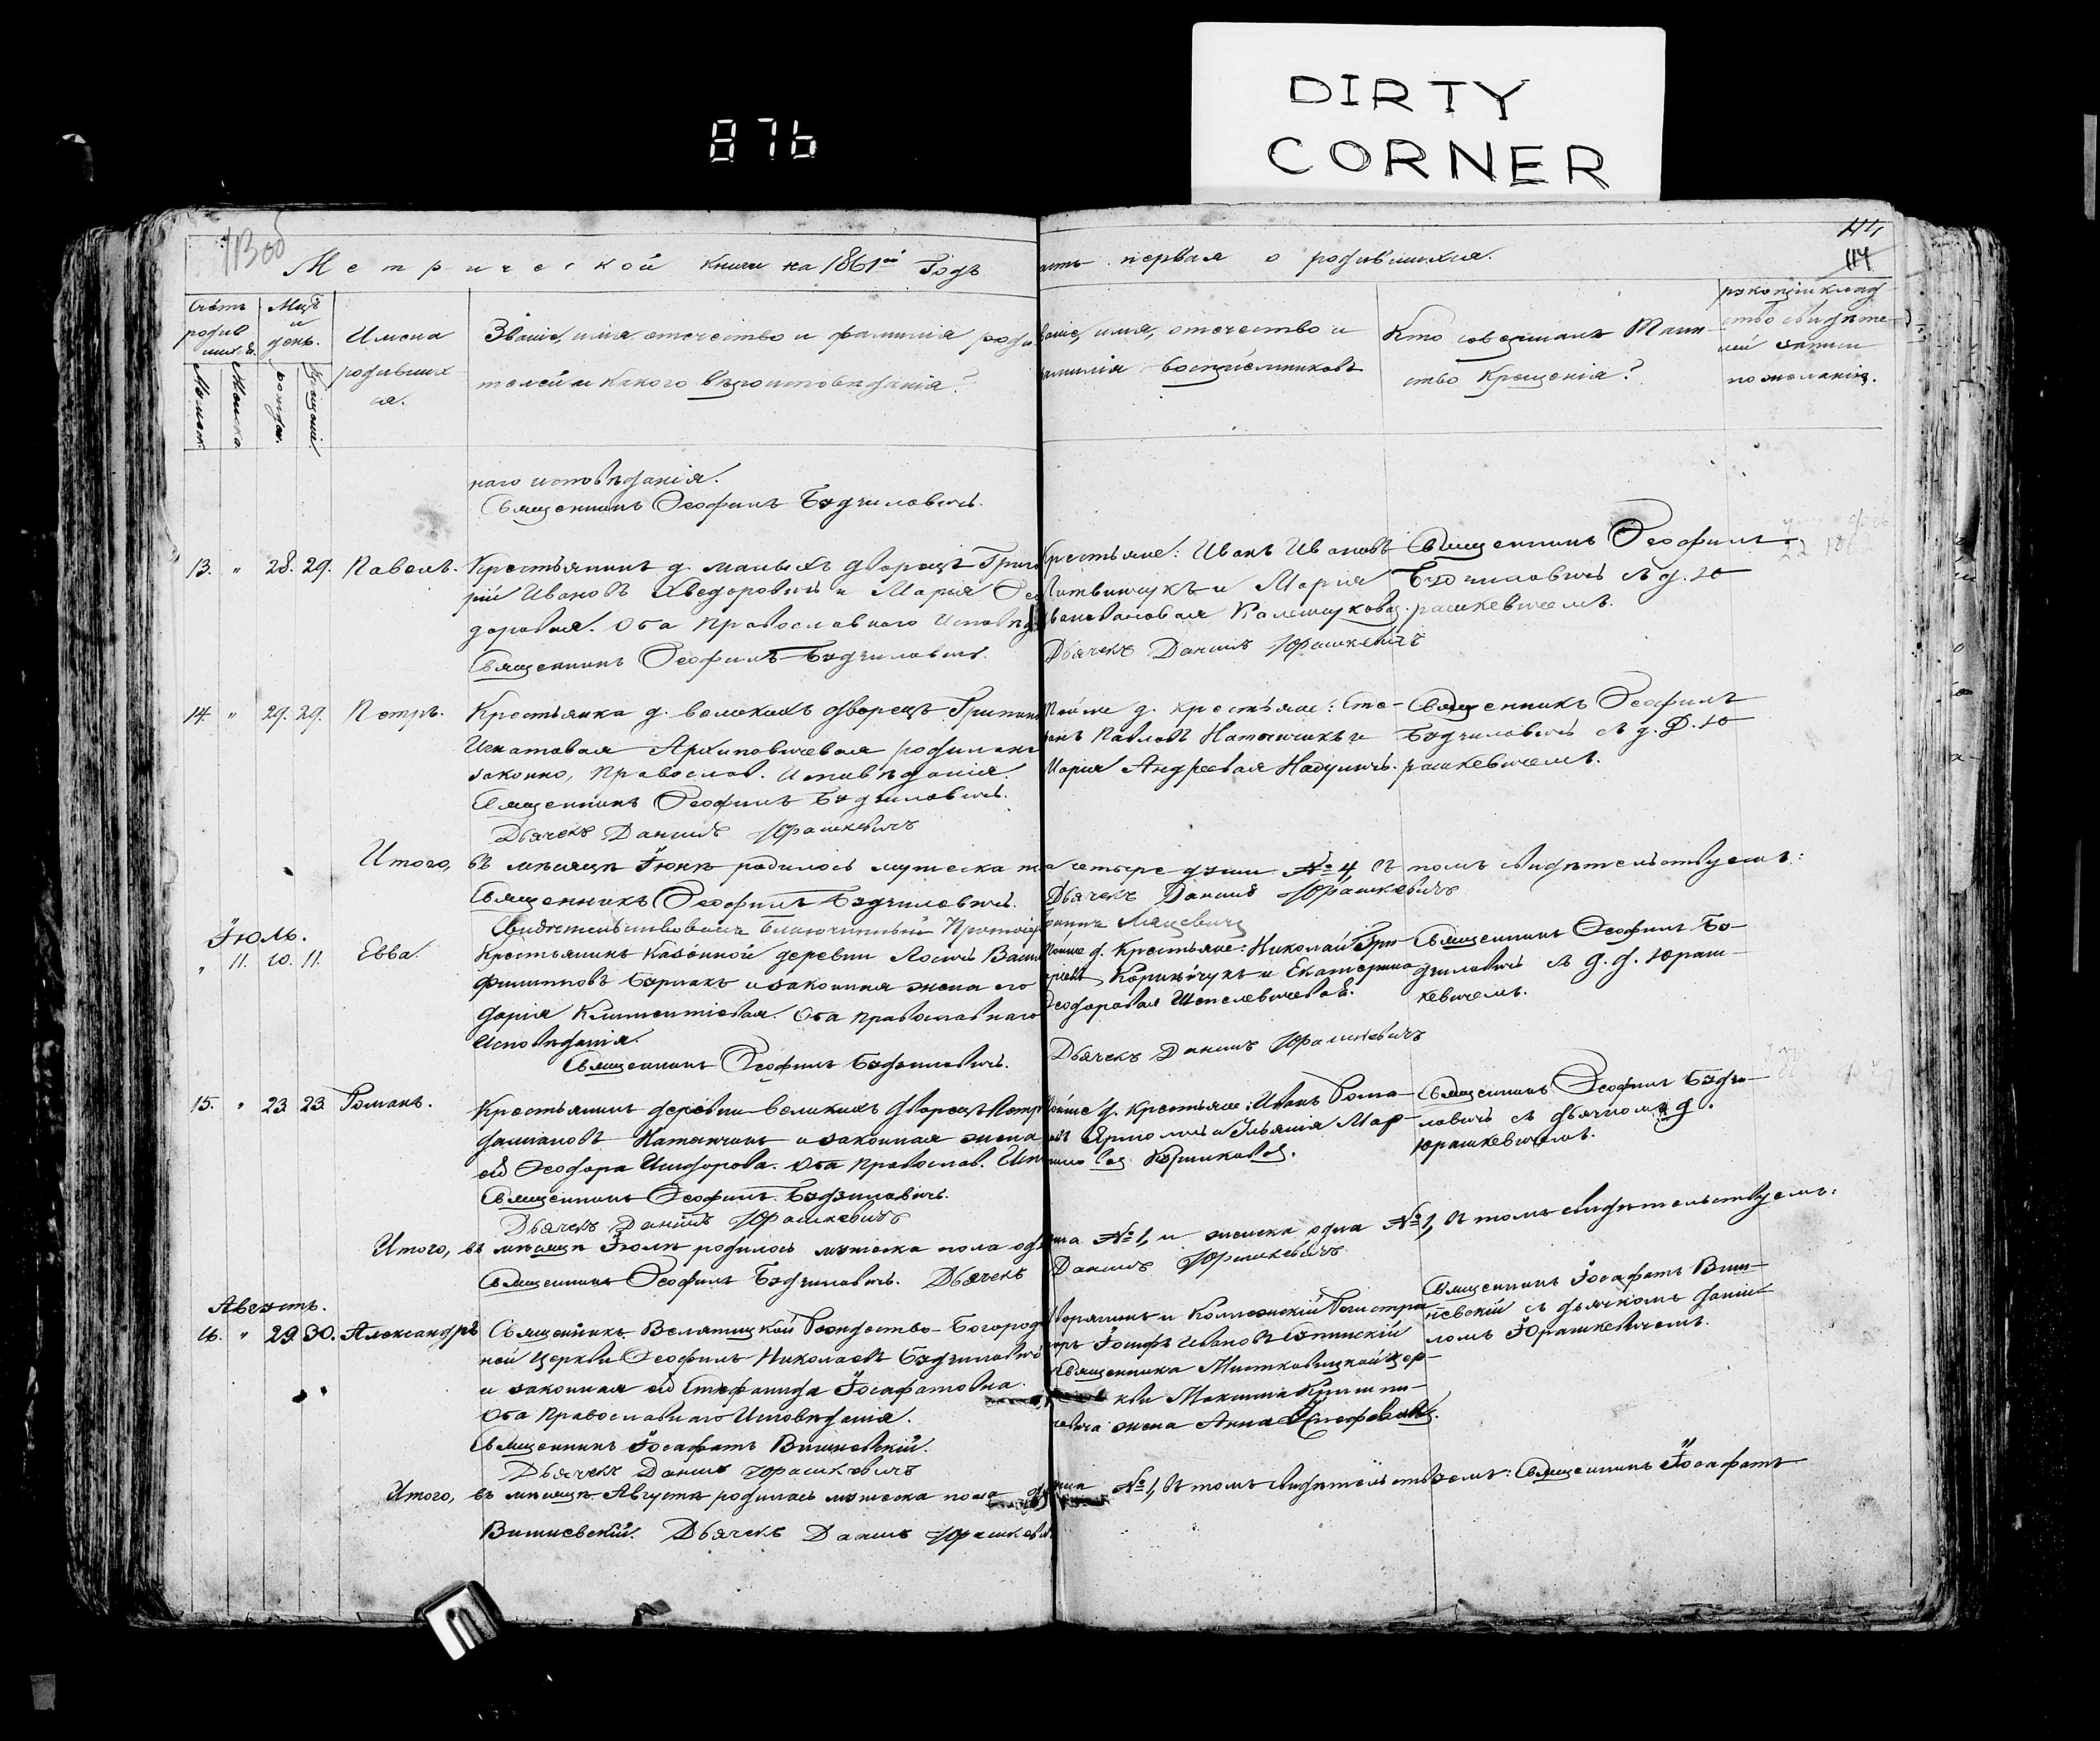 DIRTY
CORNER
876
113 об
114
114
Метрической книги на 1861й Годъ
асть первая о родившихся.
Счётъ родив шихся.
Мужеск.
Женска.
Мцъ и день.
рожден.
Крещенія.
Имена
родивших
ся.
Званіе, имя, отчество и фамилія роди
телей и какого вѣроисповѣданія?
ваніе, имя, отчество и
амилія воспріемниковъ
Кто совершалъ Таин-
ство Крещенія?
рукоприклад-
ство свидѣте-
лей записи
по желанію.
наго исповѣданія.
Священникъ Ѳеофилъ Будзиловичъ.
13. " 28. 29. Павелъ.
Крестьянинъ д. малыхъ дворецъ Григо
рій Ивановъ Хведоровичъ и Марія Ѳео
доровая. Оба Православнаго Исповѣд
Священникъ Ѳеофилъ Будзиловичъ.
Крестьяне: Иванъ Ивановъ
Литвинчукъ и Марія
Дьячекъ Даніилъ Юрашкевичъ
Священникъ Ѳеофилъ
Будзиловичъ съ д. Ю
рашкевичемъ.
14. " 29. 29. Петръ.
Крестьянка д. великихъ дворецъ
Игнатовая Архиповичевая родила не
законно, Православ. Исповѣданія.
Священникъ Ѳеофилъ Будзиловичъ.
Дьячекъ Даніилъ Юрашкевичъ
Тойже д. крестьяне: Сте-
панъ Павловъ Натынчикъ и
Марія Андреевая
Священникъ Ѳеофилъ
Будзиловичъ съ д. Д. Ю
рашкевичемъ.
Итого, въ мѣсяцѣ Іюнѣ родилось мужеска по
ла четыре души № 4, въ томъ свидѣтельствуемъ:
Священникъ Ѳеофилъ Будзиловичъ.
Дьячекъ Даніилъ Юрашкевичъ
Свидѣтельствовалъ Благочинный Протоіе
Іюль.
" 11. 10. 11. Евва.
Крестьянинъ Казённой деревни Лосичъ Васил
Филиповъ Бурнакъ и законная жена его
Дарія Климентіевая. Оба Православнаго
Исповѣданія.
Священникъ Ѳеофилъ Будзиловичъ.
Тойже д. Крестьяне: Николай Гри-
горіевъ и Екатерина
Ѳеодоровая
Дьячекъ Даніилъ Юрашкевичъ
Священникъ Ѳеофилъ Бу-
дзиловичъ съ д. д. Юраш-
кевичемъ.
15. " 23. 23. Романъ.
Крестьянинъ деревни великихъ дворецъ Петръ
Даміановъ Натынчикъ и законная жена
его Ѳеодора Исидорова. Оба Православ. Исп
Священникъ Ѳеофилъ Будзиловичъ.
Дьячекъ Даніилъ Юрашкевичъ
Тойже д. Крестьяне: Иванъ Рома-
новъ Ярмоличъ и Ульянія Мар-
Священникъ Ѳеофилъ Будзи-
ловичъ съ дьячкомъ д.
Юрашкевичемъ.
Итого, въ мѣсяцѣ Іюлѣ родилось мужеска пола од
на № 1, и женска одна № 1, въ томъ свидѣтельствуемъ:
Священникъ Ѳеофилъ Будзиловичъ. Дьячекъ
Даніилъ Юрашкевичъ
Августъ.
16. " 29. 30. Александръ
Священникъ Велятицкой Рождество-Богород
ной Церкви Ѳеофилъ Николаевъ Будзиловичъ
и законная его Стефанида Іосафатовна.
Оба Православнаго Исповѣданія.
Священникъ Іосафатъ Вишневскій.
Дьячекъ Даніилъ Юрашкевичъ
Дворянинъ и Коллежскій Регистра
торъ Іосифъ Ивановъ
Священника Мистковицкой Цер-
кви Максима
жена Анна
Священникъ Іосафатъ Виш-
невскій съ дьячкомъ Дани-
ломъ Юрашкевичемъ.
Итого, въ мѣсяцѣ Августѣ родилась мужеска пола
№ 1, въ томъ свидѣтельствуемъ: Священникъ Іосафатъ
Вишневскій. Дьячекъ Даніилъ Юрашкевич